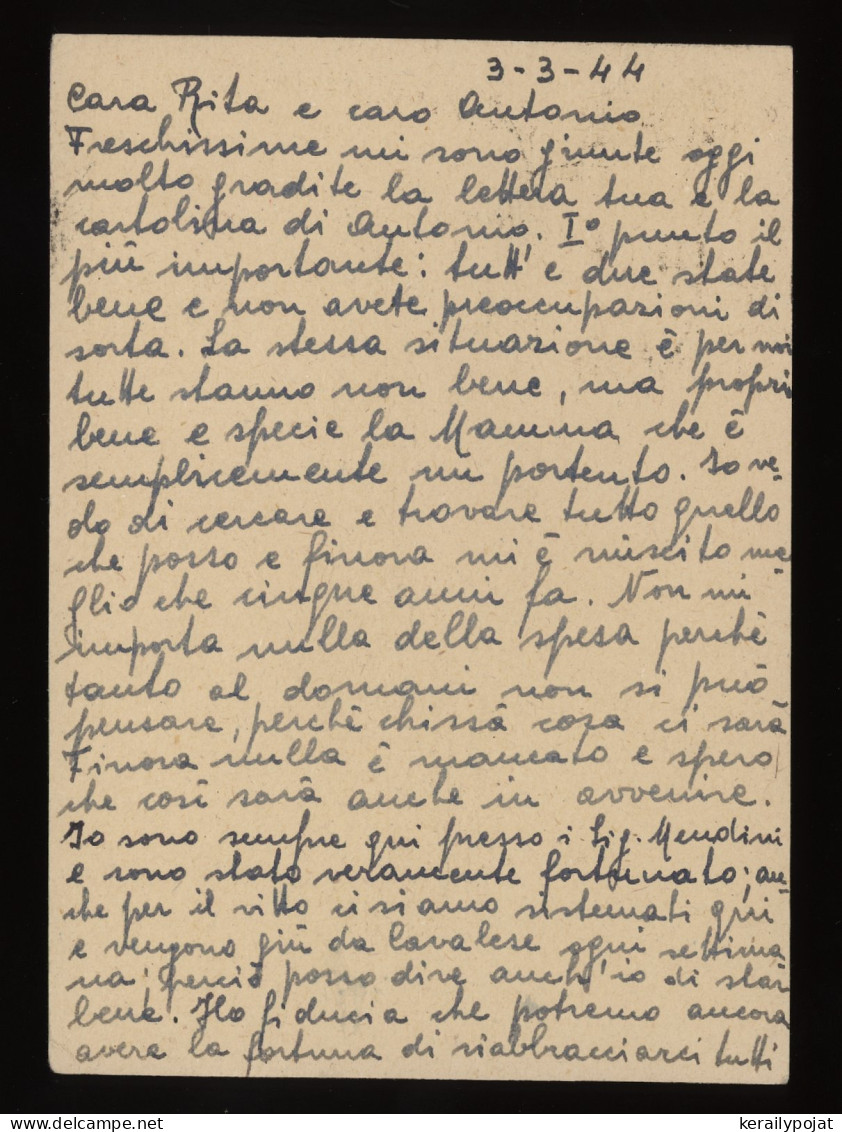 3-3-44
Cara Rita e caro Antonio
Freschissime mi sono giunte oggi
molto gradite la lettera tua e la
cartolina di Antonio. I° punto il
più importante: tutt'e due state
bene e non avete preoccupazioni di
sorta. La stessa situazione è per noi
tutte stanno non bene, ma propri
bene e specie la Mamma che è
semplicemente un portento. Io ve-
do di cercare e trovare tutto quello
che posso e finora mi è riuscito me-
glio che cinque anni fa. Non mi
importa nulla della spesa perchè
tanto al domani non si può
pensare, perchè chissà cosa ci sarà
Finora nulla è mancato e spero
che così sarà anche in avvenire.
Io sono sempre qui presso i Sig. Mendini
e sono stato veramente fortunato; an-
che per il vitto ci siamo sistemati qui
e vengono giù da Cavalese ogni settima
na; perciò posso dire anch'io di star
bene. Ho fiducia che potremo ancora
avere la fortuna di riabbracciarci tutti
kerailypojat